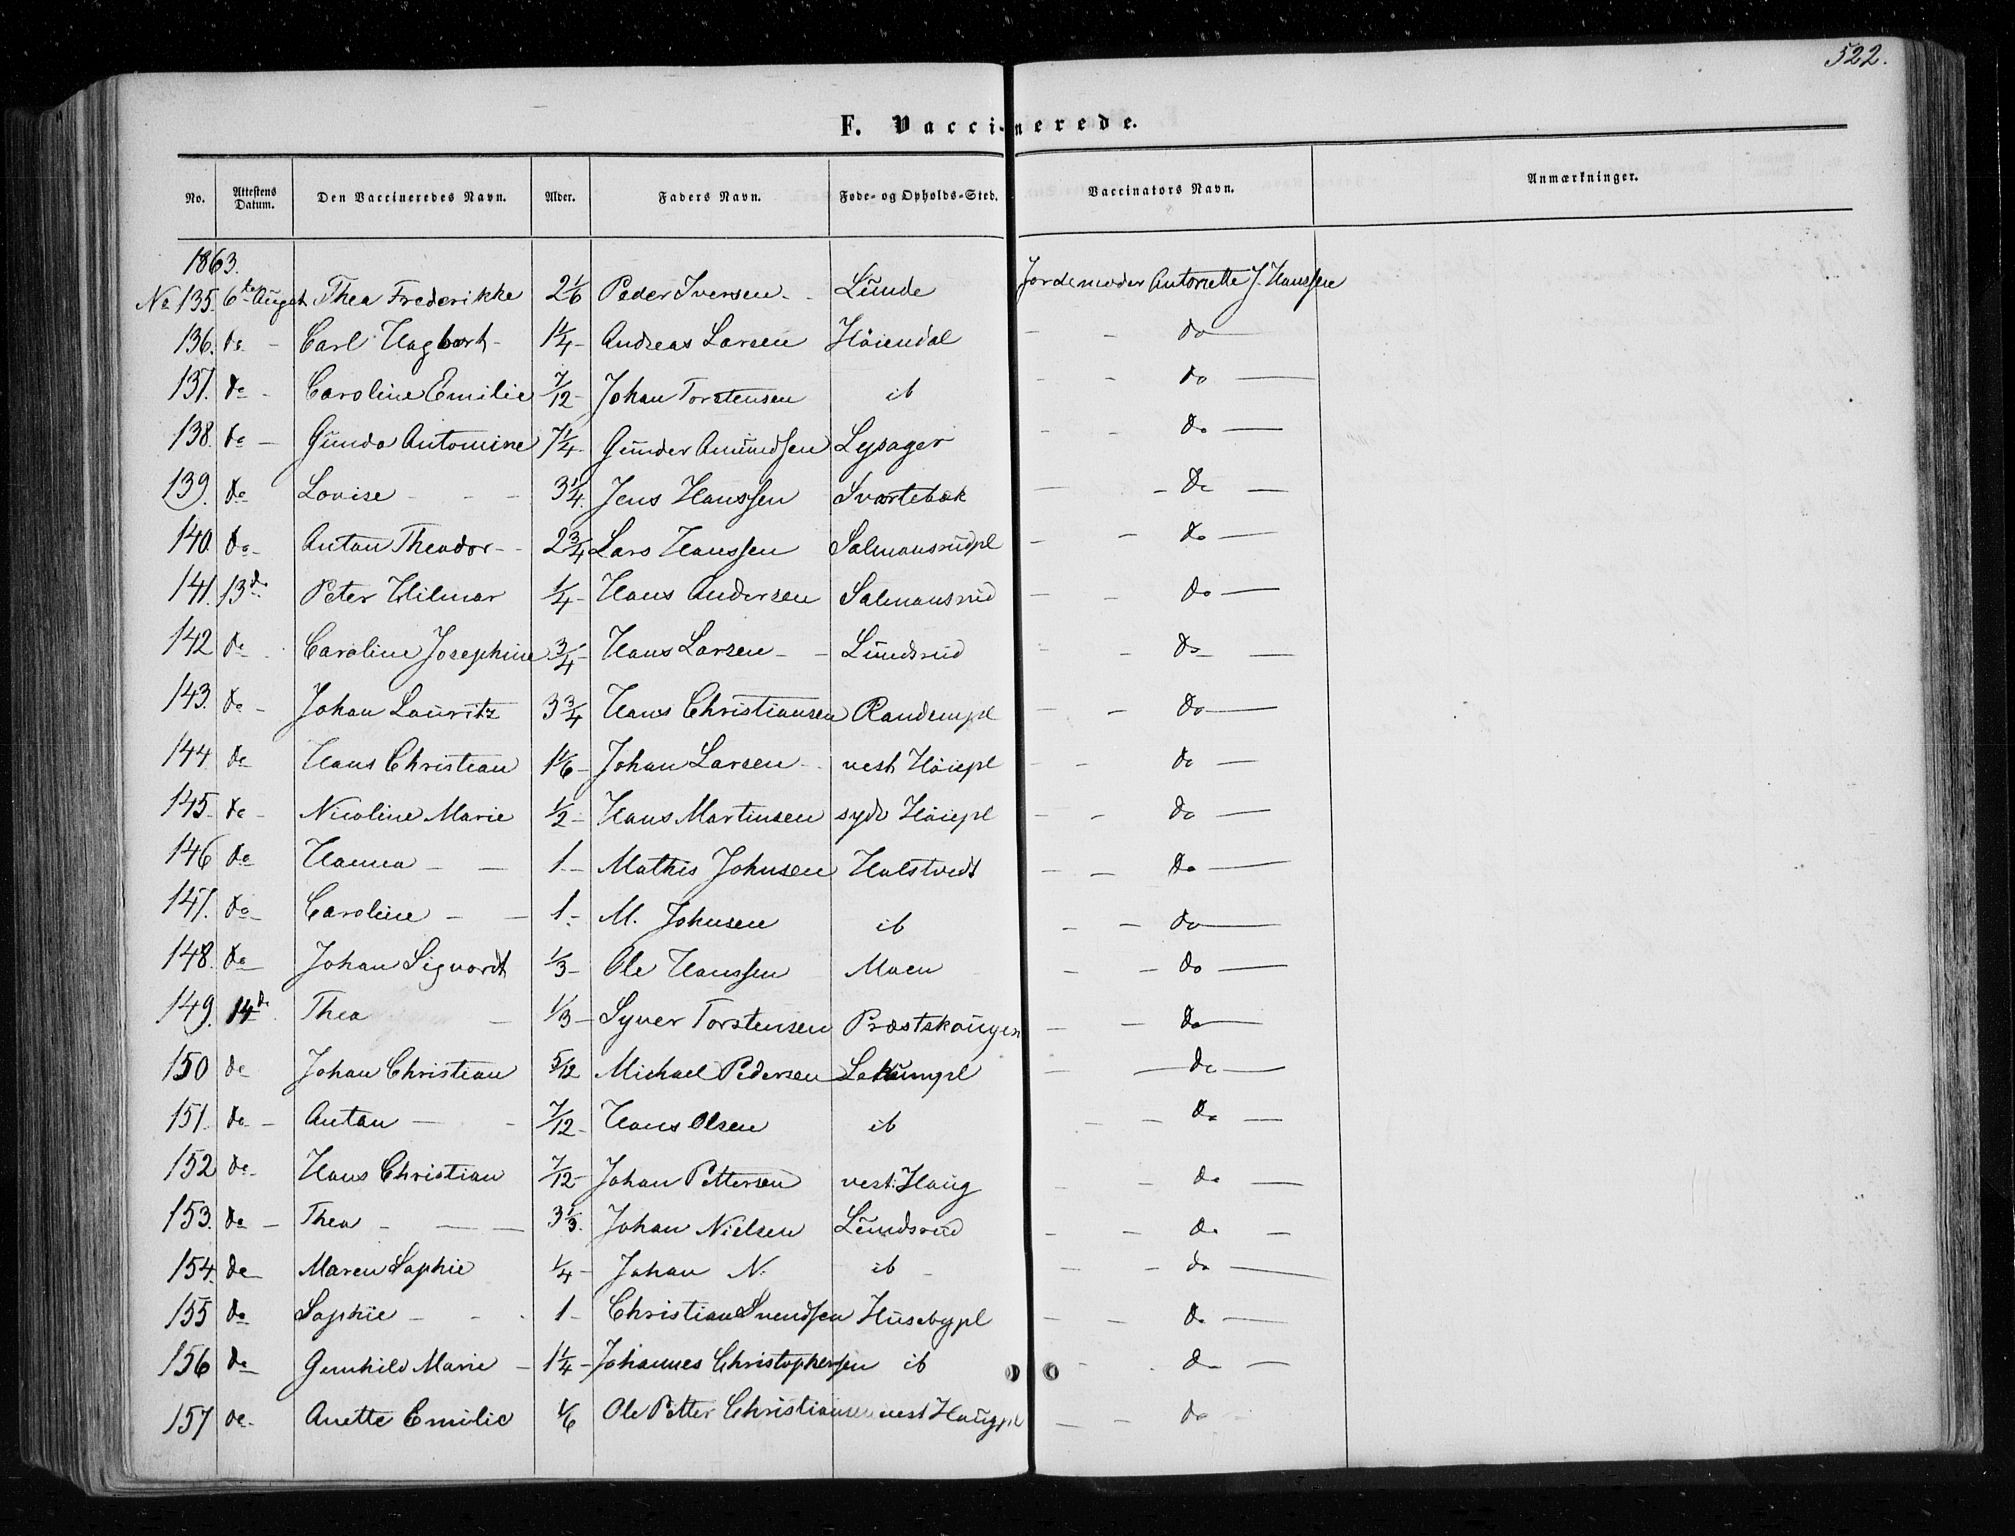 522.
F. Vaccinerede.
No. Attestens Datum. Den Vaccineredes Navn. Alder. Faders Navn. Føde- og Opholds-Sted. Vaccinators Navn. Anmærkninger.
1863.
No 135. 6te August Thea Frederikke 2 1/6 Peder Iversen - Lunde Jordemoder Antonette J. Hanssen
136. do - Carl Hagbart - 1 1/4 - Andreas Larsen Høiendal - - do -
137. do - Caroline Emilie 7/12 - Johan Torstensen ib - - do -
138. do - Gunda Antomine 7 1/4 - Gunder Amundsen Lysager - - do -
139. do Lovise - - - 3 1/4. Jens Hanssen Svartebæk - - do -
140. do - Anton Theodor - - 2 3/4 Lars Hanssen Salmansrudpl - - do -
141. 13de Peter Hilmar 1/4 - Hans Andersen Salmansrud - - do -
142 do - Caroline Josephine 3/4 - Hans Larsen - - Lundsrud - - do - -
143. do - Johan Lauritz 3 3/4 Hans Christiansen Randempl - - do -
144 do Hans Christian 1 1/6 - Johan Larsen - - vest Høiepl - - do -
145. do - Nicoline Marie 1/2 - Hans Martinsen syd Høiepl - - do -
146 do Hanna - - 1 - Mathis Johnsen Halstvedt - - do -
147. do - Caroline - - 1 - M. Johnsen ib - - do -
148. do Johan Sigvardt 1/3 - Ole Hanssen Moen - - do -
149. 14de Thea - 1/3 - Syver Torstensen Præstskougen - - do -
150 do Johan Christian 5/12 Michael Pedersen Lekumpl - - do -
151. do - Anton - - 7/12 - Hans Olsen ib - - do -
152 do - Hans Christian 7/12 - Johan Pettersen vest. Haug - - do -
153. do - Thea - - - 3 1/3. Johan Nielsen Lundsrud - - do -
154. do Maren Sophie 1/4 - Johan N. ib - - - do -
155 do Sophie - - - 1 - Christian Svendsen Husebypl - - do -
156 do Gunhild Marie - 1 1/4 - Johannes Christophersen ib - - do -
157 do - Anette Emilie 1/6 Ole Petter Christiansen vest Haugpl - - do -